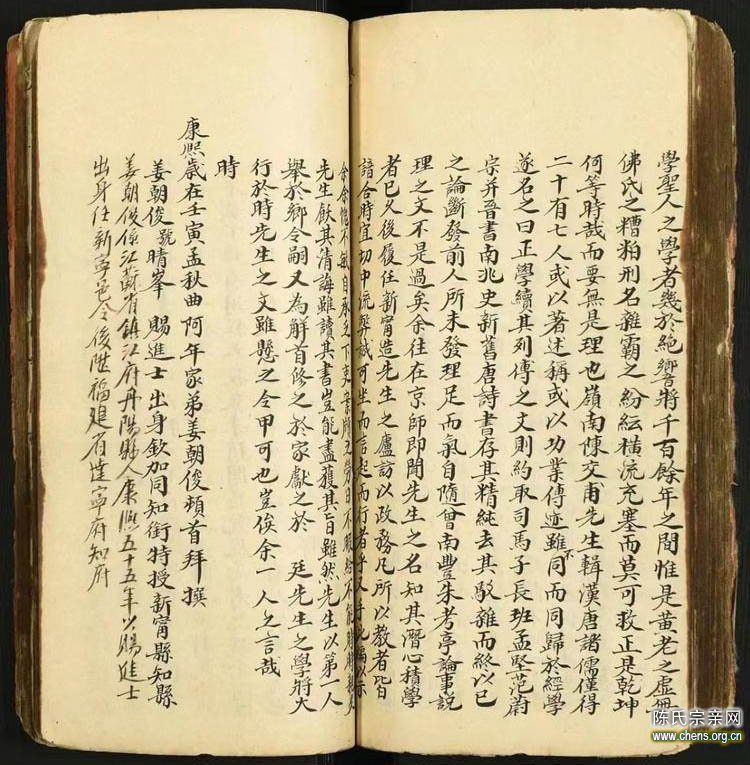 學聖人之學者幾於絕響將千百餘年之間惟是黃老之虛無
佛氏之糟粕刑名雜霸之紛紜橫流充塞而莫可救正是乾坤
何等時哉而要無是理也嶺南陳交甫先生輯漢唐諸儒僅得
二十有七人或以著述稱或以功業傳迹雖不同而同歸於經學
遂名之曰正學續其列傳之文則約取司馬子長班孟堅范蔚
宗并晉書南北史新舊唐詩書存其精純去其駁雜而終以己
之論斷發前人所未發理足而氣自隨曾南豐朱考亭論事說
理之文不是過矣余往在京師即聞先生之名知其潛心積學
者已久後履任新甯造先生之廬訪以政務凡所以教者皆
諳合時宜切中流弊誠可坐而言起而行者乎又手此編以示
余余愧不敏自承乏下吏案牘之勞日不暇給不能時時親炙
先生飫其清誨雖讀其書豈能盡獲其旨雖然先生以第一人
舉於鄉令嗣又為解首修之於家獻之於 廷先生之學將大
行於時先生之文雖懸之令甲可也豈俟余一人之言哉
時
康熙歲在壬寅孟秋曲阿年家弟姜朝俊頓首拜撰
姜朝俊號晴峯 賜進士出身欽加同知銜特授新甯縣知縣
姜朝俊係江蘇省鎮江府丹陽縣人康熙五十五年以賜進士
出身任新寧邑令後陞福建省建寧府知府
陈氏宗亲网
www.chens.org.cn